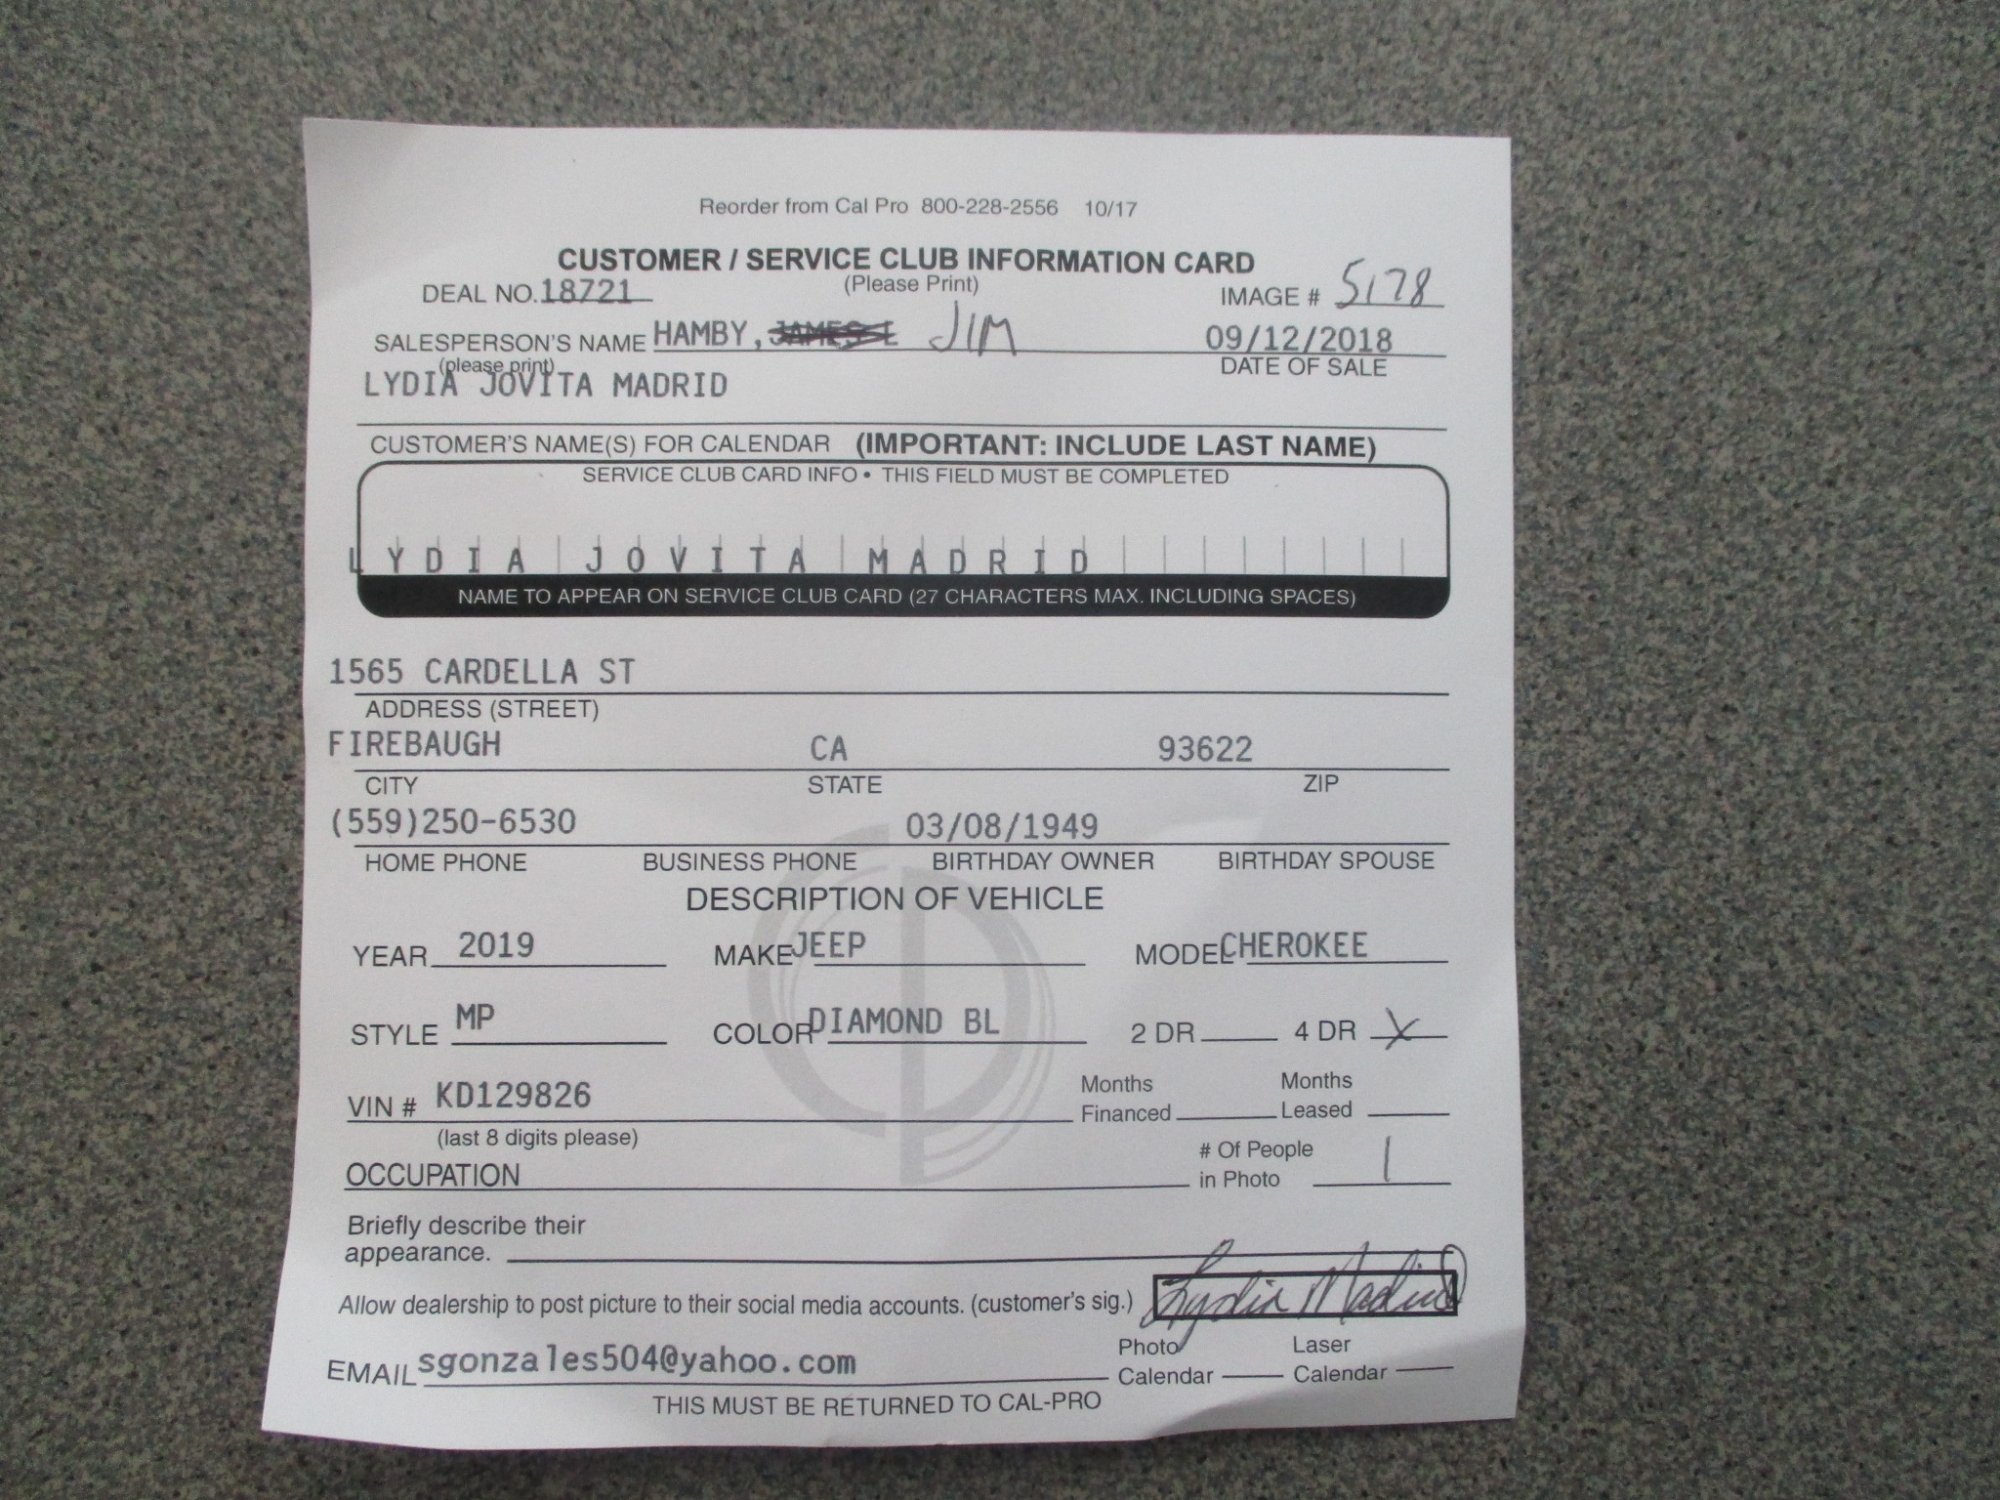 Reorder from Cal Pro 800-228-2556 10/17
CUSTOMER / SERVICE CLUB INFORMATION CARD
(Please Print)
DEAL NO. 18721 IMAGE # 5178
SALESPERSON'S NAME HAMBY, JAMES L JIM 09/12/2018
(please print) DATE OF SALE
LYDIA JOVITA MADRID
CUSTOMER'S NAME(S) FOR CALENDAR (IMPORTANT: INCLUDE LAST NAME)
SERVICE CLUB CARD INFO • THIS FIELD MUST BE COMPLETED
LYDIA JOVITA MADRID
NAME TO APPEAR ON SERVICE CLUB CARD (27 CHARACTERS MAX. INCLUDING SPACES)
1565 CARDELLA ST
ADDRESS (STREET)
FIREBAUGH CA 93622
CITY STATE ZIP
(559)250-6530 03/08/1949
HOME PHONE BUSINESS PHONE BIRTHDAY OWNER BIRTHDAY SPOUSE
DESCRIPTION OF VEHICLE
YEAR 2019 MAKE JEEP MODEL CHEROKEE
STYLE MP COLOR DIAMOND BL 2 DR 4 DR X
VIN # KD129826 Months Financed Months Leased
(last 8 digits please)
OCCUPATION # Of People in Photo 1
Briefly describe their
appearance.
Allow dealership to post picture to their social media accounts. (customer's sig.) Lydia Madrid
EMAIL sgonzales504@yahoo.com Photo Calendar Laser Calendar
THIS MUST BE RETURNED TO CAL-PRO